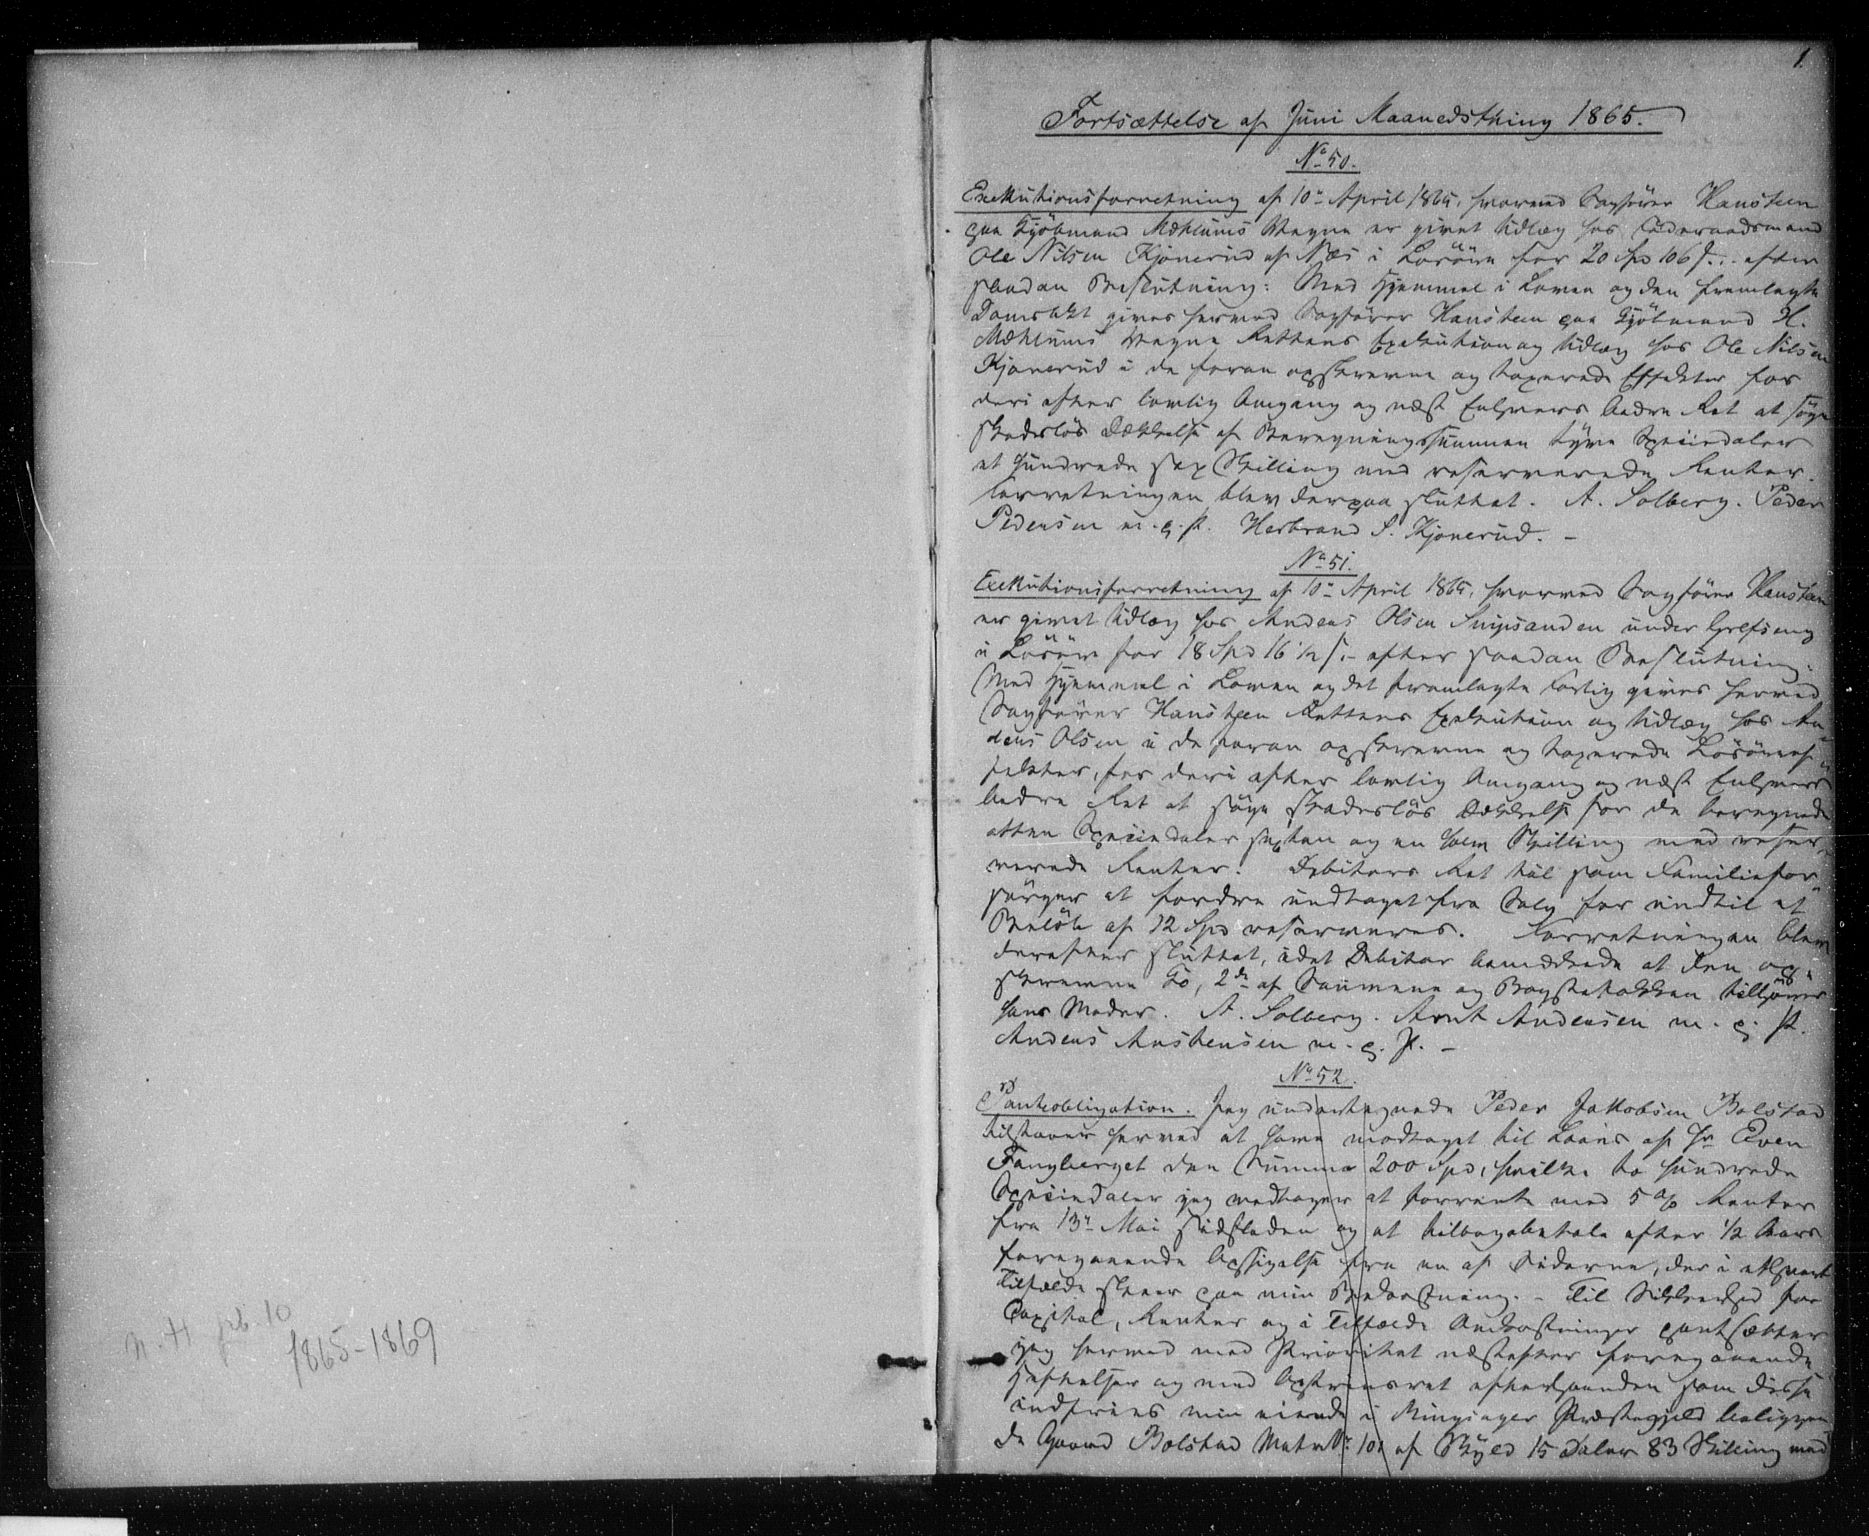 1
Fortsættelse af Juni Maanedsthing 1865.
No 50.
Exekutionsforretning af 10de April 1865, hvorved Sagfører Hansteen
paa Kjøbmand Mæhlums Vegne er givet Udlæg hos Føderaadsmand
Ole Nilsen Kjonerud af Næs i Løsøre for 20 Spd 106 s. efter
saadan Beslutning: Med Hjemmel i Loven og den fremlagte
Domsakt gives herved Sagfører Hansteen paa Kjøbmand H.
Mæhlums Vegne Rettens Exekution og Udlæg hos Ole Nilsen
Kjonerud i de foran opskrevne og taxerede Effekter for
deri efter lovlig Omgang og næst Enhvers bedre Ret at søge
skadesløs Dækkelse af Beregningssummen tyve Speciedaler
et hundrede sex Skilling med reserverede Renter.
Forretningen blev derpaa sluttet. A. Solberg. Peder
Pedersen m. p. P. Herbrand S. Kjonerud. –
No 51.
Exekutionsforretning af 10de April 1865, hvorved Sagfører Hansteen
er givet Udlæg hos Anders Olsen under
i Løsøre for 18 Spd 16 1/2 s. – efter saadan Beslutning:
Med Hjemmel i Loven og det fremlagte Forlig gives herved
Sagfører Hansteen Rettens Exekution og Udlæg hos An-
ders Olsen i de foran opskrevne og taxerede Løsøreef-
fekter, for deri efter lovlig Omgang og næst Enhvers
bedre Ret at søge skadesløs Dækkelse for de beregnede
atten Speciedaler sexten og en halv Skilling med reser-
verede Renter. Debitors Ret til som Familiefor-
sørger at fordre undtaget fra Salg for indtil et
Beløb af 12 Spd reserveres. Forretningen blev
derefter sluttet, idet Debitor bemærkede at den op-
skrevne Ko, 2de af Sauerne og tilhører
hans Moder. A. Solberg. Arnt Andersen m. p. P.
Anders Anstensen m. p. P. –
No 52.
Panteobligation. Jeg undertegnede Peder Jakobsen Bolstad
tilstaaer herved at have modtaget til Laans af Hr Even
Fangberget den Summa 200 Spd, hvilke to hundrede
Speciedaler jeg vedtager at forrente med 5 % Renter
fra 13de Mai sidstleden og at tilbagebetale efter 1/2 Aars
foregaaende Opsigelse fra en af Siderne, der i ethvert
Tilfælde skeer paa min Bekostning. – Til Sikkerhed for
Capital, Renter og i Tilfælde Omkostninger pantsætter
jeg herved med Prioritet næstefter foregaaende
Heftelser og med Oprykningsret efterhaanden som disse
indfries min eiende i Ringsager Præstegjeld beliggen-
de Gaard Bolstad Matr No 101 af Skyld 15 Daler 83 Skilling med
N. H pb. 10
1865-1869